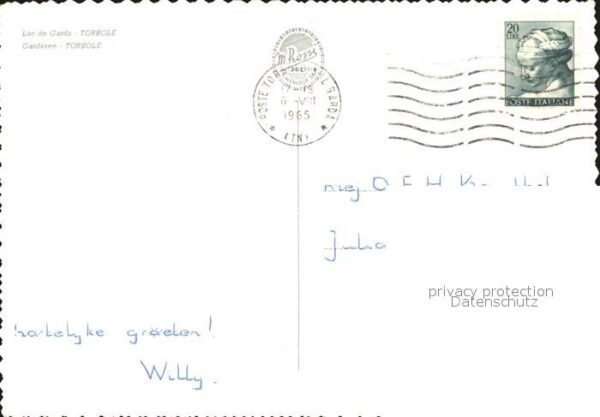 Lac de Garde - TORBOLE
Gardasee - TORBOLE
POSTE TORBOLE SUL GARDA
17-18
6 -VIII
1965
(TN)
20
LIRE
POSTE ITALIANE
mej O E H
Julia
privacy protection
Datenschutz
hartelyke groeten!
Willy.